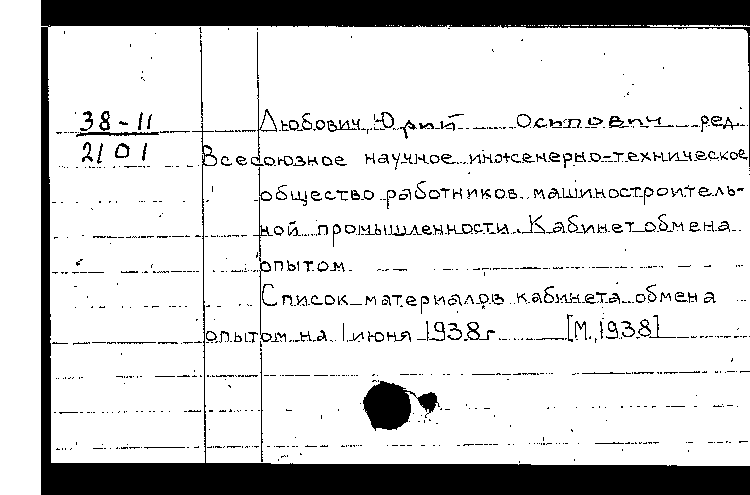 38-11 Любович, Юрий Осипович ред.
2101 Всесоюзное научное инженерно-техническое
общество работников машиностроитель-
ной промышленности. Кабинет обмена
опытом.
Список материалов кабинета обмена
опытом на 1 июня 1938г. [М, 1938]